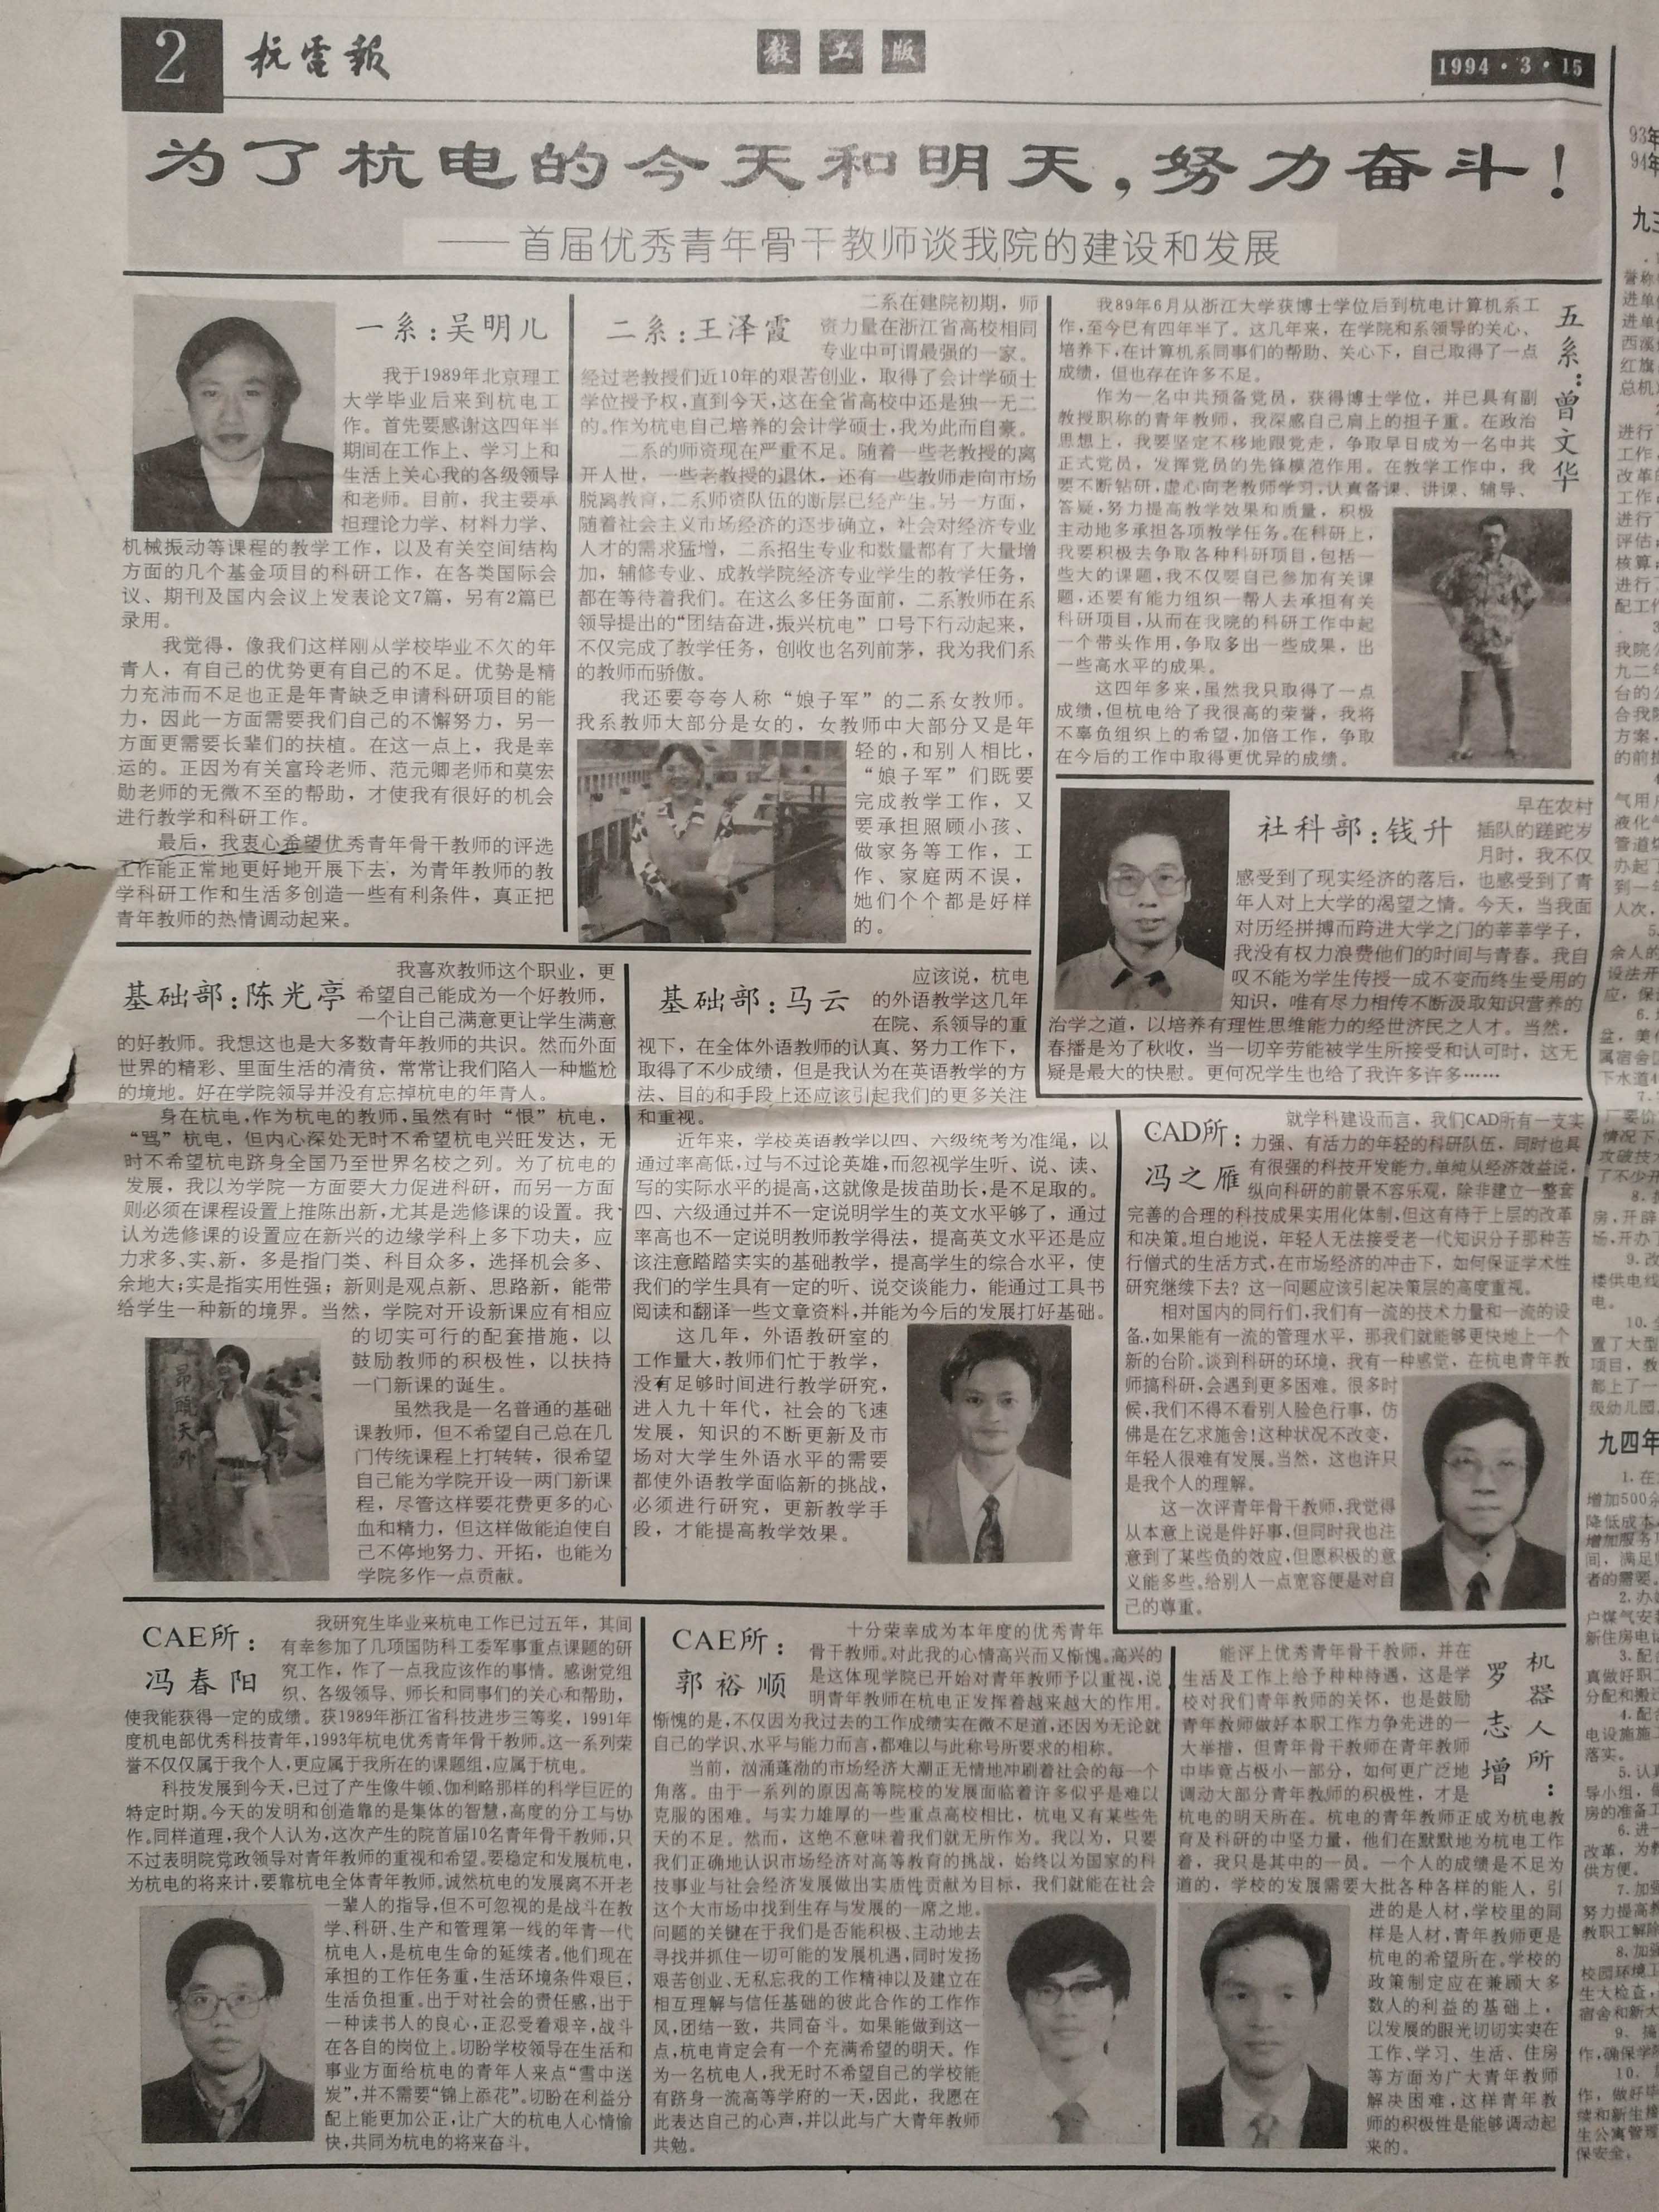 2
杭電報
教工版
1994·3·15
为了杭电的今天和明天,努力奋斗!
——首届优秀青年骨干教师谈我院的建设和发展
一系:吴明儿
我于1989年北京理工
大学毕业后来到杭电工
作。首先要感谢这四年半
期间在工作上、学习上和
生活上关心我的各级领导
和老师。目前,我主要承
担理论力学、材料力学、
机械振动等课程的教学工作,以及有关空间结构
方面的几个基金项目的科研工作,在各类国际会
议、期刊及国内会议上发表论文7篇,另有2篇已
录用。
我觉得,像我们这样刚从学校毕业不久的年
青人,有自己的优势更有自己的不足。优势是精
力充沛而不足也正是年青缺乏申请科研项目的能
力,因此一方面需要我们自己的不懈努力,另一
方面更需要长辈们的扶植。在这一点上,我是幸
运的。正因为有关富玲老师、范元卿老师和莫宏
勋老师的无微不至的帮助,才使我有很好的机会
进行教学和科研工作。
最后,我衷心希望优秀青年骨干教师的评选
工作能正常地更好地开展下去,为青年教师的教
学科研工作和生活多创造一些有利条件,真正把
青年教师的热情调动起来。
二系:王泽霞
二系在建院初期,师
资力量在浙江省高校相同
专业中可谓最强的一家。
经过老教授们近10年的艰苦创业,取得了会计学硕士
学位授予权,直到今天,这在全省高校中还是独一无二
的。作为杭电自己培养的会计学硕士,我为此而自豪。
二系的师资现在严重不足。随着一些老教授的离
开人世,一些老教授的退休,还有一些教师走向市场
脱离教育,二系师资队伍的断层已经产生。另一方面,
随着社会主义市场经济的逐步确立,社会对经济专业
人才的需求猛增,二系招生专业和数量都有了大量增
加,辅修专业、成教学院经济专业学生的教学任务,
都在等待着我们。在这么多任务面前,二系教师在系
领导提出的“团结奋进,振兴杭电”口号下行动起来,
不仅完成了教学任务,创收也名列前茅,我为我们系
的教师而骄傲。
我还要夸夸人称“娘子军”的二系女教师。
我系教师大部分是女的,女教师中大部分又是年
轻的,和别人相比,
“娘子军”们既要
完成教学工作,又
要承担照顾小孩、
做家务等工作,工
作、家庭两不误,
她们个个都是好样
的。
五系:曾文华
我89年6月从浙江大学获博士学位后到杭电计算机系工
作,至今已有四年半了。这几年来,在学院和系领导的关心、
培养下,在计算机系同事们的帮助、关心下,自己取得了一点
成绩,但也存在许多不足。
作为一名中共预备党员,获得博士学位,并已具有副
教授职称的青年教师,我深感自己肩上的担子重。在政治
思想上,我要坚定不移地跟党走,争取早日成为一名中共
正式党员,发挥党员的先锋模范作用。在教学工作中,我
要不断钻研,虚心向老教师学习,认真备课、讲课、辅导、
答疑,努力提高教学效果和质量,积极
主动地多承担各项教学任务。在科研上,
我要积极去争取各种科研项目,包括一
些大的课题,我不仅要自己参加有关课
题,还要有能力组织一帮人去承担有关
科研项目,从而在我院的科研工作中起
一个带头作用,争取多出一些成果,出
一些高水平的成果。
这四年多来,虽然我只取得了一点
成绩,但杭电给了我很高的荣誉,我将
不辜负组织上的希望,加倍工作,争取
在今后的工作中取得更优异的成绩。
社科部:钱升
早在农村
插队的蹉跎岁
月时,我不仅
感受到了现实经济的落后,也感受到了青
年人对上大学的渴望之情。今天,当我面
对历经拼搏而跨进大学之门的莘莘学子,
我没有权力浪费他们的时间与青春。我自
叹不能为学生传授一成不变而终生受用的
知识,唯有尽力相传不断汲取知识营养的
治学之道,以培养有理性思维能力的经世济民之人才。当然,
春播是为了秋收,当一切辛劳能被学生所接受和认可时,这无
疑是最大的快慰。更何况学生也给了我许多许多……
基础部:陈光亭
我喜欢教师这个职业,更
希望自己能成为一个好教师,
一个让自己满意更让学生满意
的好教师。我想这也是大多数青年教师的共识。然而外面
世界的精彩、里面生活的清贫,常常让我们陷入一种尴尬
的境地。好在学院领导并没有忘掉杭电的年青人。
身在杭电,作为杭电的教师,虽然有时“恨”杭电,
“骂”杭电,但内心深处无时不希望杭电兴旺发达,无
时不希望杭电跻身全国乃至世界名校之列。为了杭电的
发展,我以为学院一方面要大力促进科研,而另一方面
则必须在课程设置上推陈出新,尤其是选修课的设置。我
认为选修课的设置应在新兴的边缘学科上多下功夫,应
力求多、实、新,多是指门类、科目众多,选择机会多、
余地大;实是指实用性强;新则是观点新、思路新,能带
给学生一种新的境界。当然,学院对开设新课应有相应
的切实可行的配套措施,以
鼓励教师的积极性,以扶持
一门新课的诞生。
虽然我是一名普通的基础
课教师,但不希望自己总在几
门传统课程上打转转,很希望
自己能为学院开设一两门新课
程,尽管这样要花费更多的心
血和精力,但这样做能迫使自
己不停地努力、开拓,也能为
学院多作一点贡献。
昂頭天外
基础部:马云
应该说,杭电
的外语教学这几年
在院、系领导的重
视下,在全体外语教师的认真、努力工作下,
取得了不少成绩,但是我认为在英语教学的方
法、目的和手段上还应该引起我们的更多关注
和重视。
近年来,学校英语教学以四、六级统考为准绳,以
通过率高低,过与不过论英雄,而忽视学生听、说、读、
写的实际水平的提高,这就像是拔苗助长,是不足取的。
四、六级通过并不一定说明学生的英文水平够了,通过
率高也不一定说明教师教学得法,提高英文水平还是应
该注意踏踏实实的基础教学,提高学生的综合水平,使
我们的学生具有一定的听、说交谈能力,能通过工具书
阅读和翻译一些文章资料,并能为今后的发展打好基础。
这几年,外语教研室的
工作量大,教师们忙于教学,
没有足够时间进行教学研究,
进入九十年代,社会的飞速
发展,知识的不断更新及市
场对大学生外语水平的需要
都使外语教学面临新的挑战,
必须进行研究,更新教学手
段,才能提高教学效果。
CAD所:
冯之雁
就学科建设而言,我们CAD所有一支实
力强、有活力的年轻的科研队伍,同时也具
有很强的科技开发能力。单纯从经济效益说,
纵向科研的前景不容乐观,除非建立一整套
完善的合理的科技成果实用化体制,但这有待于上层的改革
和决策。坦白地说,年轻人无法接受老一代知识分子那种苦
行僧式的生活方式,在市场经济的冲击下,如何保证学术性
研究继续下去?这一问题应该引起决策层的高度重视。
相对国内的同行们,我们有一流的技术力量和一流的设
备,如果能有一流的管理水平,那我们就能够更快地上一个
新的台阶。谈到科研的环境,我有一种感觉,在杭电青年教
师搞科研,会遇到更多困难。很多时
候,我们不得不看别人脸色行事,仿
佛是在乞求施舍!这种状况不改变,
年轻人很难有发展。当然,这也许只
是我个人的理解。
这一次评青年骨干教师,我觉得
从本意上说是件好事,但同时我也注
意到了某些负的效应,但愿积极的意
义能多些。给别人一点宽容便是对自
己的尊重。
CAE所:
冯春阳
我研究生毕业来杭电工作已过五年,其间
有幸参加了几项国防科工委军事重点课题的研
究工作,作了一点我应该作的事情。感谢党组
织、各级领导、师长和同事们的关心和帮助,
使我能获得一定的成绩。获1989年浙江省科技进步三等奖,1991年
度机电部优秀科技青年,1993年杭电优秀青年骨干教师。这一系列荣
誉不仅仅属于我个人,更应属于我所在的课题组,应属于杭电。
科技发展到今天,已过了产生像牛顿、伽利略那样的科学巨匠的
特定时期。今天的发明和创造靠的是集体的智慧,高度的分工与协
作。同样道理,我个人认为,这次产生的院首届10名青年骨干教师,只
不过表明院党政领导对青年教师的重视和希望。要稳定和发展杭电,
为杭电的将来计,要靠杭电全体青年教师。诚然杭电的发展离不开老
一辈人的指导,但不可忽视的是战斗在教
学、科研、生产和管理第一线的年青一代
杭电人,是杭电生命的延续者。他们现在
承担的工作任务重,生活环境条件艰巨,
生活负担重。出于对社会的责任感,出于
一种读书人的良心,正忍受着艰辛,战斗
在各自的岗位上。切盼学校领导在生活和
事业方面给杭电的青年人来点“雪中送
炭”,并不需要“锦上添花”。切盼在利益分
配上能更加公正,让广大的杭电人心情愉
快,共同为杭电的将来奋斗。
CAE所:
郭裕顺
十分荣幸成为本年度的优秀青年
骨干教师。对此我的心情高兴而又惭愧。高兴的
是这体现学院已开始对青年教师予以重视,说
明青年教师在杭电正发挥着越来越大的作用。
惭愧的是,不仅因为我过去的工作成绩实在微不足道,还因为无论就
自己的学识、水平与能力而言,都难以与此称号所要求的相称。
当前,汹涌蓬渤的市场经济大潮正无情地冲刷着社会的每一个
角落。由于一系列的原因高等院校的发展面临着许多似乎是难以
克服的困难。与实力雄厚的一些重点高校相比,杭电又有某些先
天的不足。然而,这绝不意味着我们就无所作为。我以为,只要
我们正确地认识市场经济对高等教育的挑战,始终以为国家的科
技事业与社会经济发展做出实质性贡献为目标,我们就能在社会
这个大市场中找到生存与发展的一席之地。
问题的关键在于我们是否能积极、主动地去
寻找并抓住一切可能的发展机遇,同时发扬
艰苦创业、无私忘我的工作精神以及建立在
相互理解与信任基础的彼此合作的工作作
风,团结一致,共同奋斗。如果能做到这一
点,杭电肯定会有一个充满希望的明天。作
为一名杭电人,我无时不希望自己的学校能
有跻身一流高等学府的一天,因此,我愿在
此表达自己的心声,并以此与广大青年教师
共勉。
机器人所:
罗志增
能评上优秀青年骨干教师,并在
生活及工作上给予种种待遇,这是学
校对我们青年教师的关怀,也是鼓励
青年教师做好本职工作力争先进的一
大举措,但青年骨干教师在青年教师
中毕竟占极小一部分,如何更广泛地
调动大部分青年教师的积极性,才是
杭电的明天所在。杭电的青年教师正成为杭电教
育及科研的中坚力量,他们在默默地为杭电工作
着,我只是其中的一员。一个人的成绩是不足为
道的,学校的发展需要大批各种各样的能人,引
进的是人材,学校里的同
样是人材,青年教师更是
杭电的希望所在。学校的
政策制定应在兼顾大多
数人的利益的基础上,
以发展的眼光切切实实在
工作、学习、生活、住房
等方面为广大青年教师
解决困难,这样青年教
师的积极性是能够调动起
来的。
93年
94年
九三
誉称
进单
进单
西溪
红旗
总机
进行
工作
改革的
工作
进行
评估
核算
进行
配工作
我院
九二年
台的
合我院
方案,
的前提
气用户
液化气
管道
办起了
到一年
人次,
余人的
设法开
应,保
盆,美化
属宿舍
下水道4
厂要价
情况下
攻破技
了不少
房,开辟
场,开办
9.改
楼供电线
电。
10.全
置了大型
项目,教
都上了一
级幼儿园
九四年
1.在
增加500余
降低成本
增加服务
间,满足
者的需要。
2.办
户煤气安
新住房电
3.配合
真做好职工
分配和搬迁
4.配合
电设施施工
落实。
5.认真
导小组,
房的准备工
6.进一
改革,为教
供方便。
7.加强
努力提高教
教职工解除
8.加强
校园环境工
生大检查,
宿舍和新大
9.搞
作,确保学
10.
作,做好毕
续和新生接
生公寓管理
保安全。